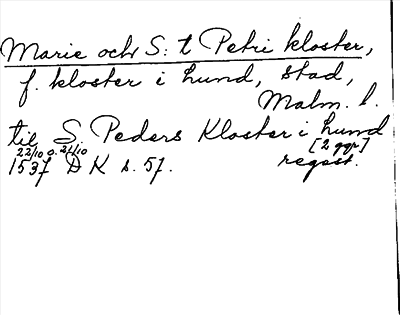 Marie och S:t Petri kloster,
f. kloster i Lund, stad,
Malm. l.
till S. Peders Kloster i Lund
22/10 o. 24/10 [2 ggr]
1537 DK s. 57. regest.